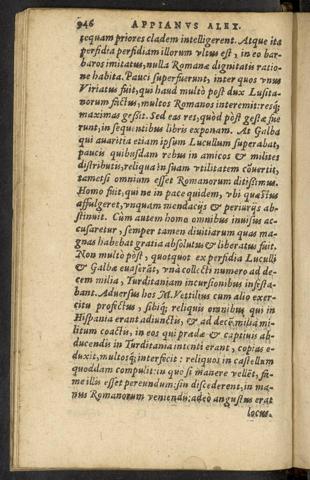 946 APPIANVS ALEX.
sequam priores cladem intelligerent. Atque ita
perfidia perfidiam illorum vltus est, in eo bar-
baros imitatus, nulla Romanæ dignitatis ratio-
ne habita. Pauci superfuerunt, inter quos vnus
Viriatus fuit, qui haud multò pòst dux Lusita-
norum factus, multos Romanos interemit: resq;
maximas gessit. Sed eas res, quòd pòst gestæ fue
runt, in sequentibus libris exponam. At Galba
qui auaritia etiam ipsum Lucullum superabat,
paucis quibusdam rebus in amicos & milites
distributis, reliqua in suam vtilitatem cōuertit,
tametsi omnium esset Romanorum ditissimus.
Homo fuit, qui ne in pace quidem, vbi quæstus
affulgeret, vnquam mendacijs & periurijs ab-
stinuit. Cùm autem homo omnibus inuisus ac-
cusaretur, semper tamen diuitiarum quas ma-
gnas habebat gratia absolutus & liberatus fuit.
Non multò pòst, quotquot ex perfidia Luculli
& Galbæ euaserāt, vnà collecti numero ad de-
cem milia, Turditaniam incursionibus infesta-
bant. Aduersus hos M. Vetilius cum alio exer-
citu profectus, sibiq; reliquis omnibus qui in
Hispania erant adiunctis, & ad decē milia mi-
litum coactis, in eos qui prædæ & captiuis ab-
ducendis in Turditania intenti erant, copias e-
duxit, multosq; interficit: reliquos in castellum
quoddam compulit: in quo si manere vellēt, fa-
me illis esset pereundum: sin discederent, in ma-
nus Romanorum veniendū: adeò angustus erat
locus.